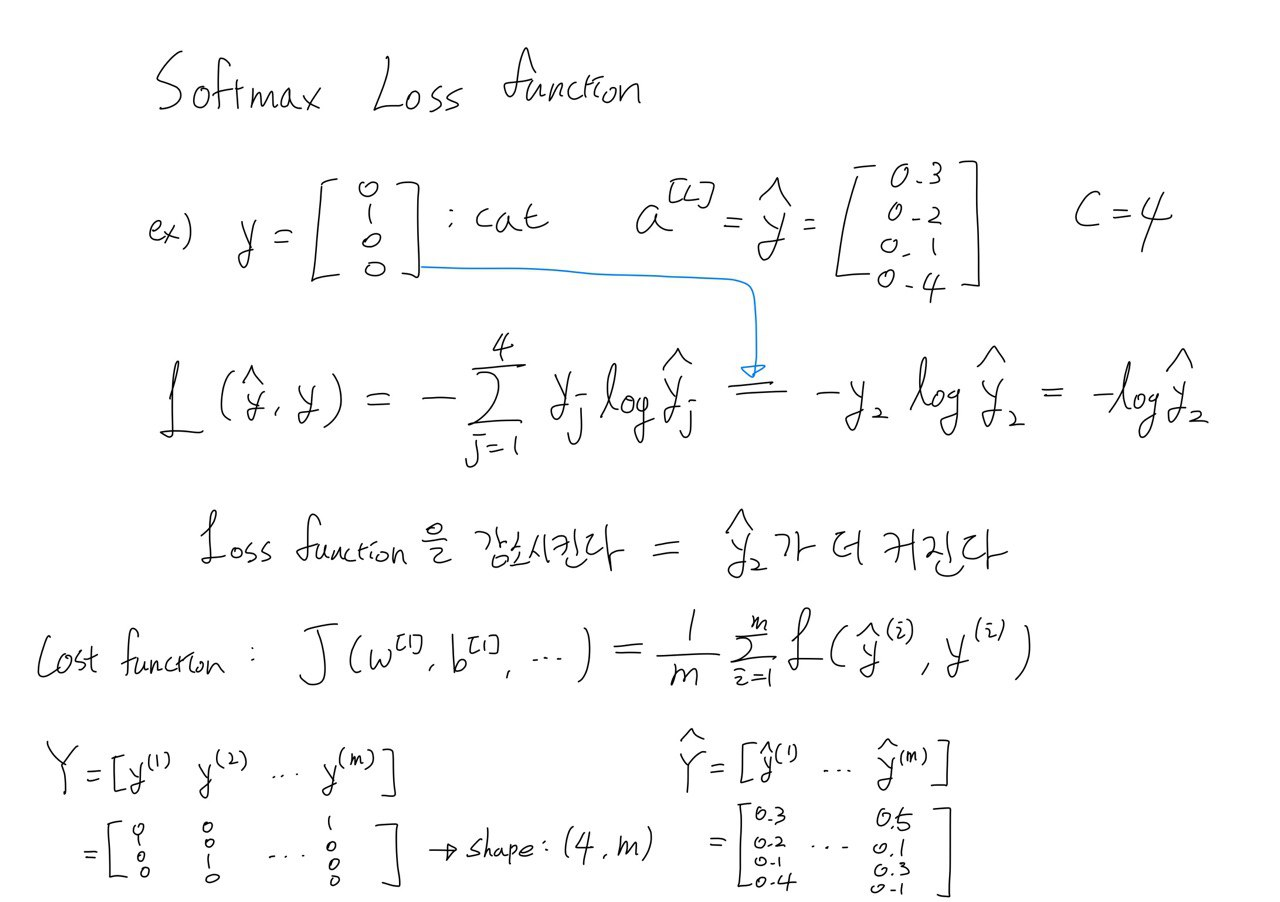 Softmax Loss function
ex) y = [0 1 0 0] : cat a^[L] = ŷ = [0.3 0.2 0.1 0.4] C = 4
L(ŷ, y) = -∑_{j=1}^{4} y_j log ŷ_j = -y_2 log ŷ_2 = -log ŷ_2
Loss function을 감소시킨다 = ŷ_2가 더 커진다
Cost function : J(w^[1], b^[1], ...) = 1/m ∑_{i=1}^{m} L(ŷ^(i), y^(i))
Y = [y^(1) y^(2) ... y^(m)] Ŷ = [ŷ^(1) ... ŷ^(m)]
= [0 1 0 0 0 0 1 0 ... 1 0 0 0] → shape : (4, m) = [0.3 0.2 0.1 0.4 ... 0.5 0.1 0.3 0.1]